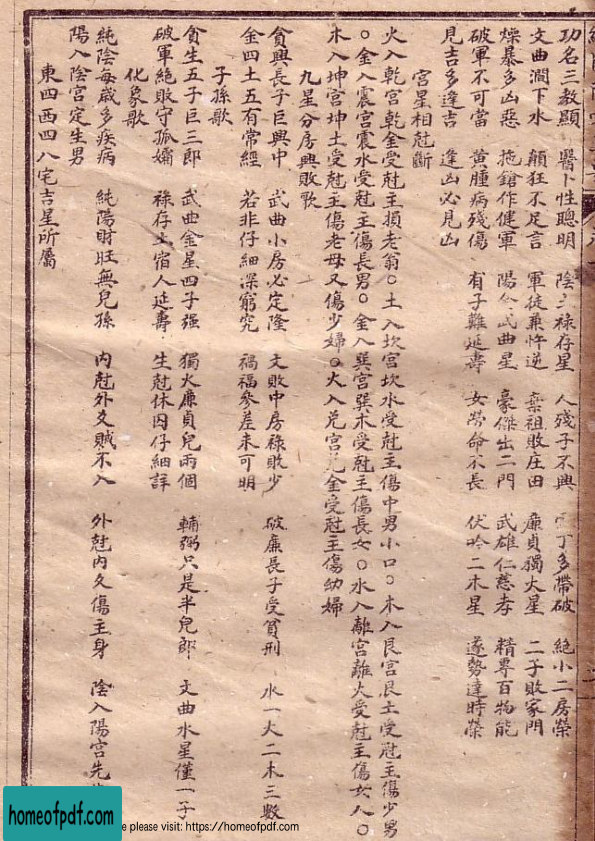 功名三教顯 醫卜性聰明 陰 祿存星 人殘子不興 丁多帶破 絕小二房榮
文曲澗下水 顛狂不足言 軍徒兼忤逆 棄祖敗庄田 廉貞獨火星 二子敗家門
燥暴多凶惡 拖鎗作健軍 陽 武曲星 豪傑出二門 武雄仁慈孝 精專百物能
破軍不可當 黃腫病殘傷 有子難延壽 女勞命不長 伏吟二木星 遂勢達時榮
見吉多逢吉 逢凶必見凶
宮星相尅斷
火入乾宮乾金受尅主損老翁○土入坎宮坎水受尅主傷中男小口○木入艮宮艮土受尅主傷少男
○金入震宮震木受尅主傷長男○金入巽宮巽木受尅主傷長女○水入離宮離火受尅主傷女人○
木入坤宮坤土受尅主傷老母又傷少婦○火入兌宮兌金受尅主傷幼婦
九星分房興敗歌
貪興長子巨興中 武曲小房必定隆 文敗中房祿敗少 破廉長子受貧刑 水一火二木三數
金四土五有常經 若非仔細深窮究 禍福參差未可明
子孫歌
貪生五子巨三郎 武曲金星四子强 獨火廉貞兒兩個 輔弼只是半兒郎 文曲水星僅一子
破軍絕敗守孤孀 祿存土宿人延壽 生尅休囚仔細詳
化象歌
純陰每歲多疾病 純陽財旺無兒孫 內尅外爻賊不入 外尅內爻傷主身 陰入陽宮先生
陽入陰宮定生男
東四西四八宅吉星所屬
homeofpdf.com
e please visit: https://homeofpdf.com